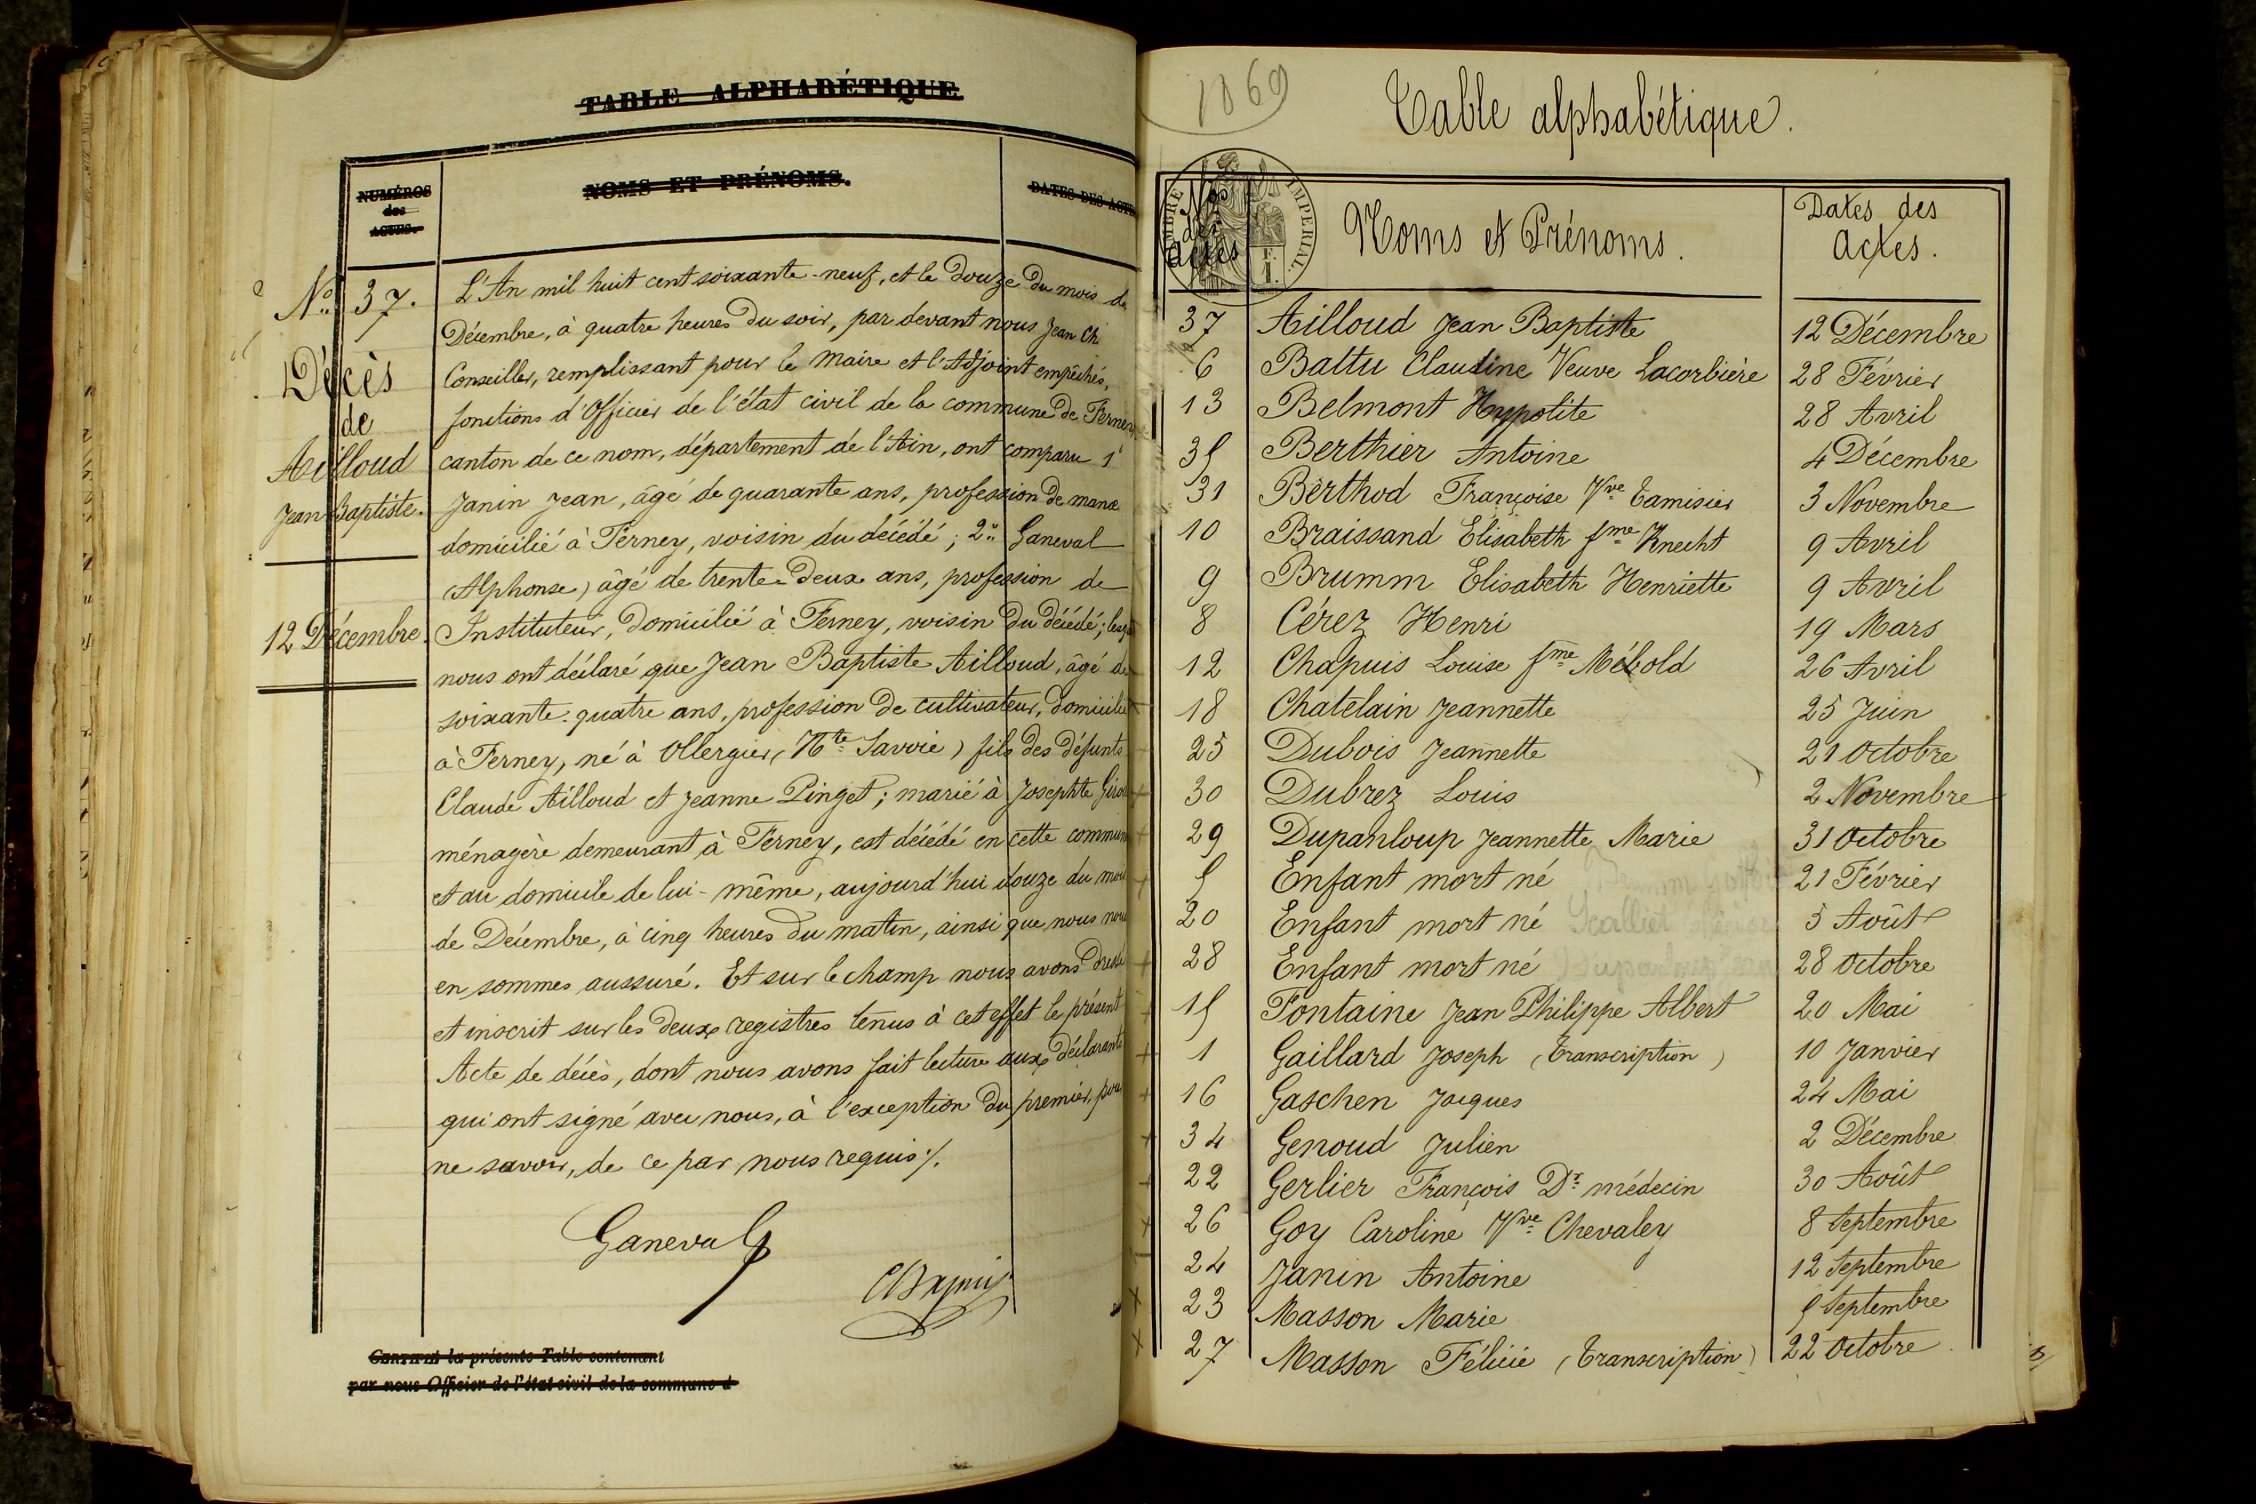 TABLE ALPHABÉTIQUE
NUMÉROS
des
ACTES.
NOMS ET PRÉNOMS.
DATES DES ACTE
No 37.
Décès
de
Ailloud
Jean Baptiste.
12 Décembre.
L'An mil huit cent soixante-neuf, et le douze du mois de
Décembre, à quatre heures du soir, par devant nous Jean Ch
Conseiller, remplissant pour le Maire et l'Adjoint empêchés,
fonctions d'Officier de l'état civil de la commune de Ferney,
canton de ce nom, département de l'Ain, ont comparu 1°
Janin Jean, âgé de quarante ans, profession de manœ
domicilié à Ferney, voisin du décédé; 2° Ganeval
(Alphonse) âgé de trente-deux ans, profession de
Instituteur, domicilié à Ferney, voisin du décédé; lesq
nous ont déclaré que Jean Baptiste Ailloud, âgé de
soixante-quatre ans, profession de cultivateur, domicilié
à Ferney, né à Ollergier (Hte Savoie) fils des défunts
Claude Ailloud et Jeanne Pinget; marié à Josephte Giro
ménagère demeurant à Ferney, est décédé en cette commun
et au domicile de lui-même, aujourd'hui douze du mois
de Décembre, à cinq heures du matin, ainsi que nous nou
en sommes aussuré. Et sur le champ nous avons dressé
et inscrit sur les deux registres tenus à cet effet le présent
Acte de décès, dont nous avons fait lecture aux déclarants
qui ont signé avec nous, à l'exception du premier, pour
ne savoir, de ce par nous requis ./.
Ganeval
CERTIFIÉ la présente Table contenant
par nous Officier de l'état civil de la commune d
1869
Table alphabétique.
TIMBRE IMPERIAL.
F.
1.
Nos
des
Actes
Noms et Prénoms.
Dates des
Actes.
37 Ailloud Jean Baptiste 12 Décembre
6 Battu Claudine Veuve Lacorbière 28 Février
13 Belmont Hypolite 28 Avril
35 Berthier Antoine 4 Décembre
31 Berthod Françoise Vve Tamisier 3 Novembre
10 Braissand Elisabeth fme Knecht 9 Avril
9 Brumm Elisabeth Henriette 9 Avril
8 Cérez Henri 19 Mars
12 Chapuis Louise fme Mébold 26 Avril
18 Chatelain Jeannette 25 Juin
25 Dubois Jeannette 21 Octobre
30 Dubrez Louis 2 Novembre
29 Dupanloup Jeannette Marie 31 Octobre
5 Enfant mort né 21 Février
20 Enfant mort né 5 Août
28 Enfant mort né 28 Octobre
15 Fontaine Jean Philippe Albert 20 Mai
1 Gaillard Joseph (Transcription) 10 Janvier
16 Gaschen Jacques 24 Mai
34 Genoud Julien 2 Décembre
22 Gerlier François Dr médecin 30 Août
26 Goy Caroline Vve Chevaley 8 Septembre
24 Janin Antoine 12 Septembre
23 Masson Marie 5 Septembre
27 Masson Félicie (Transcription) 22 Octobre